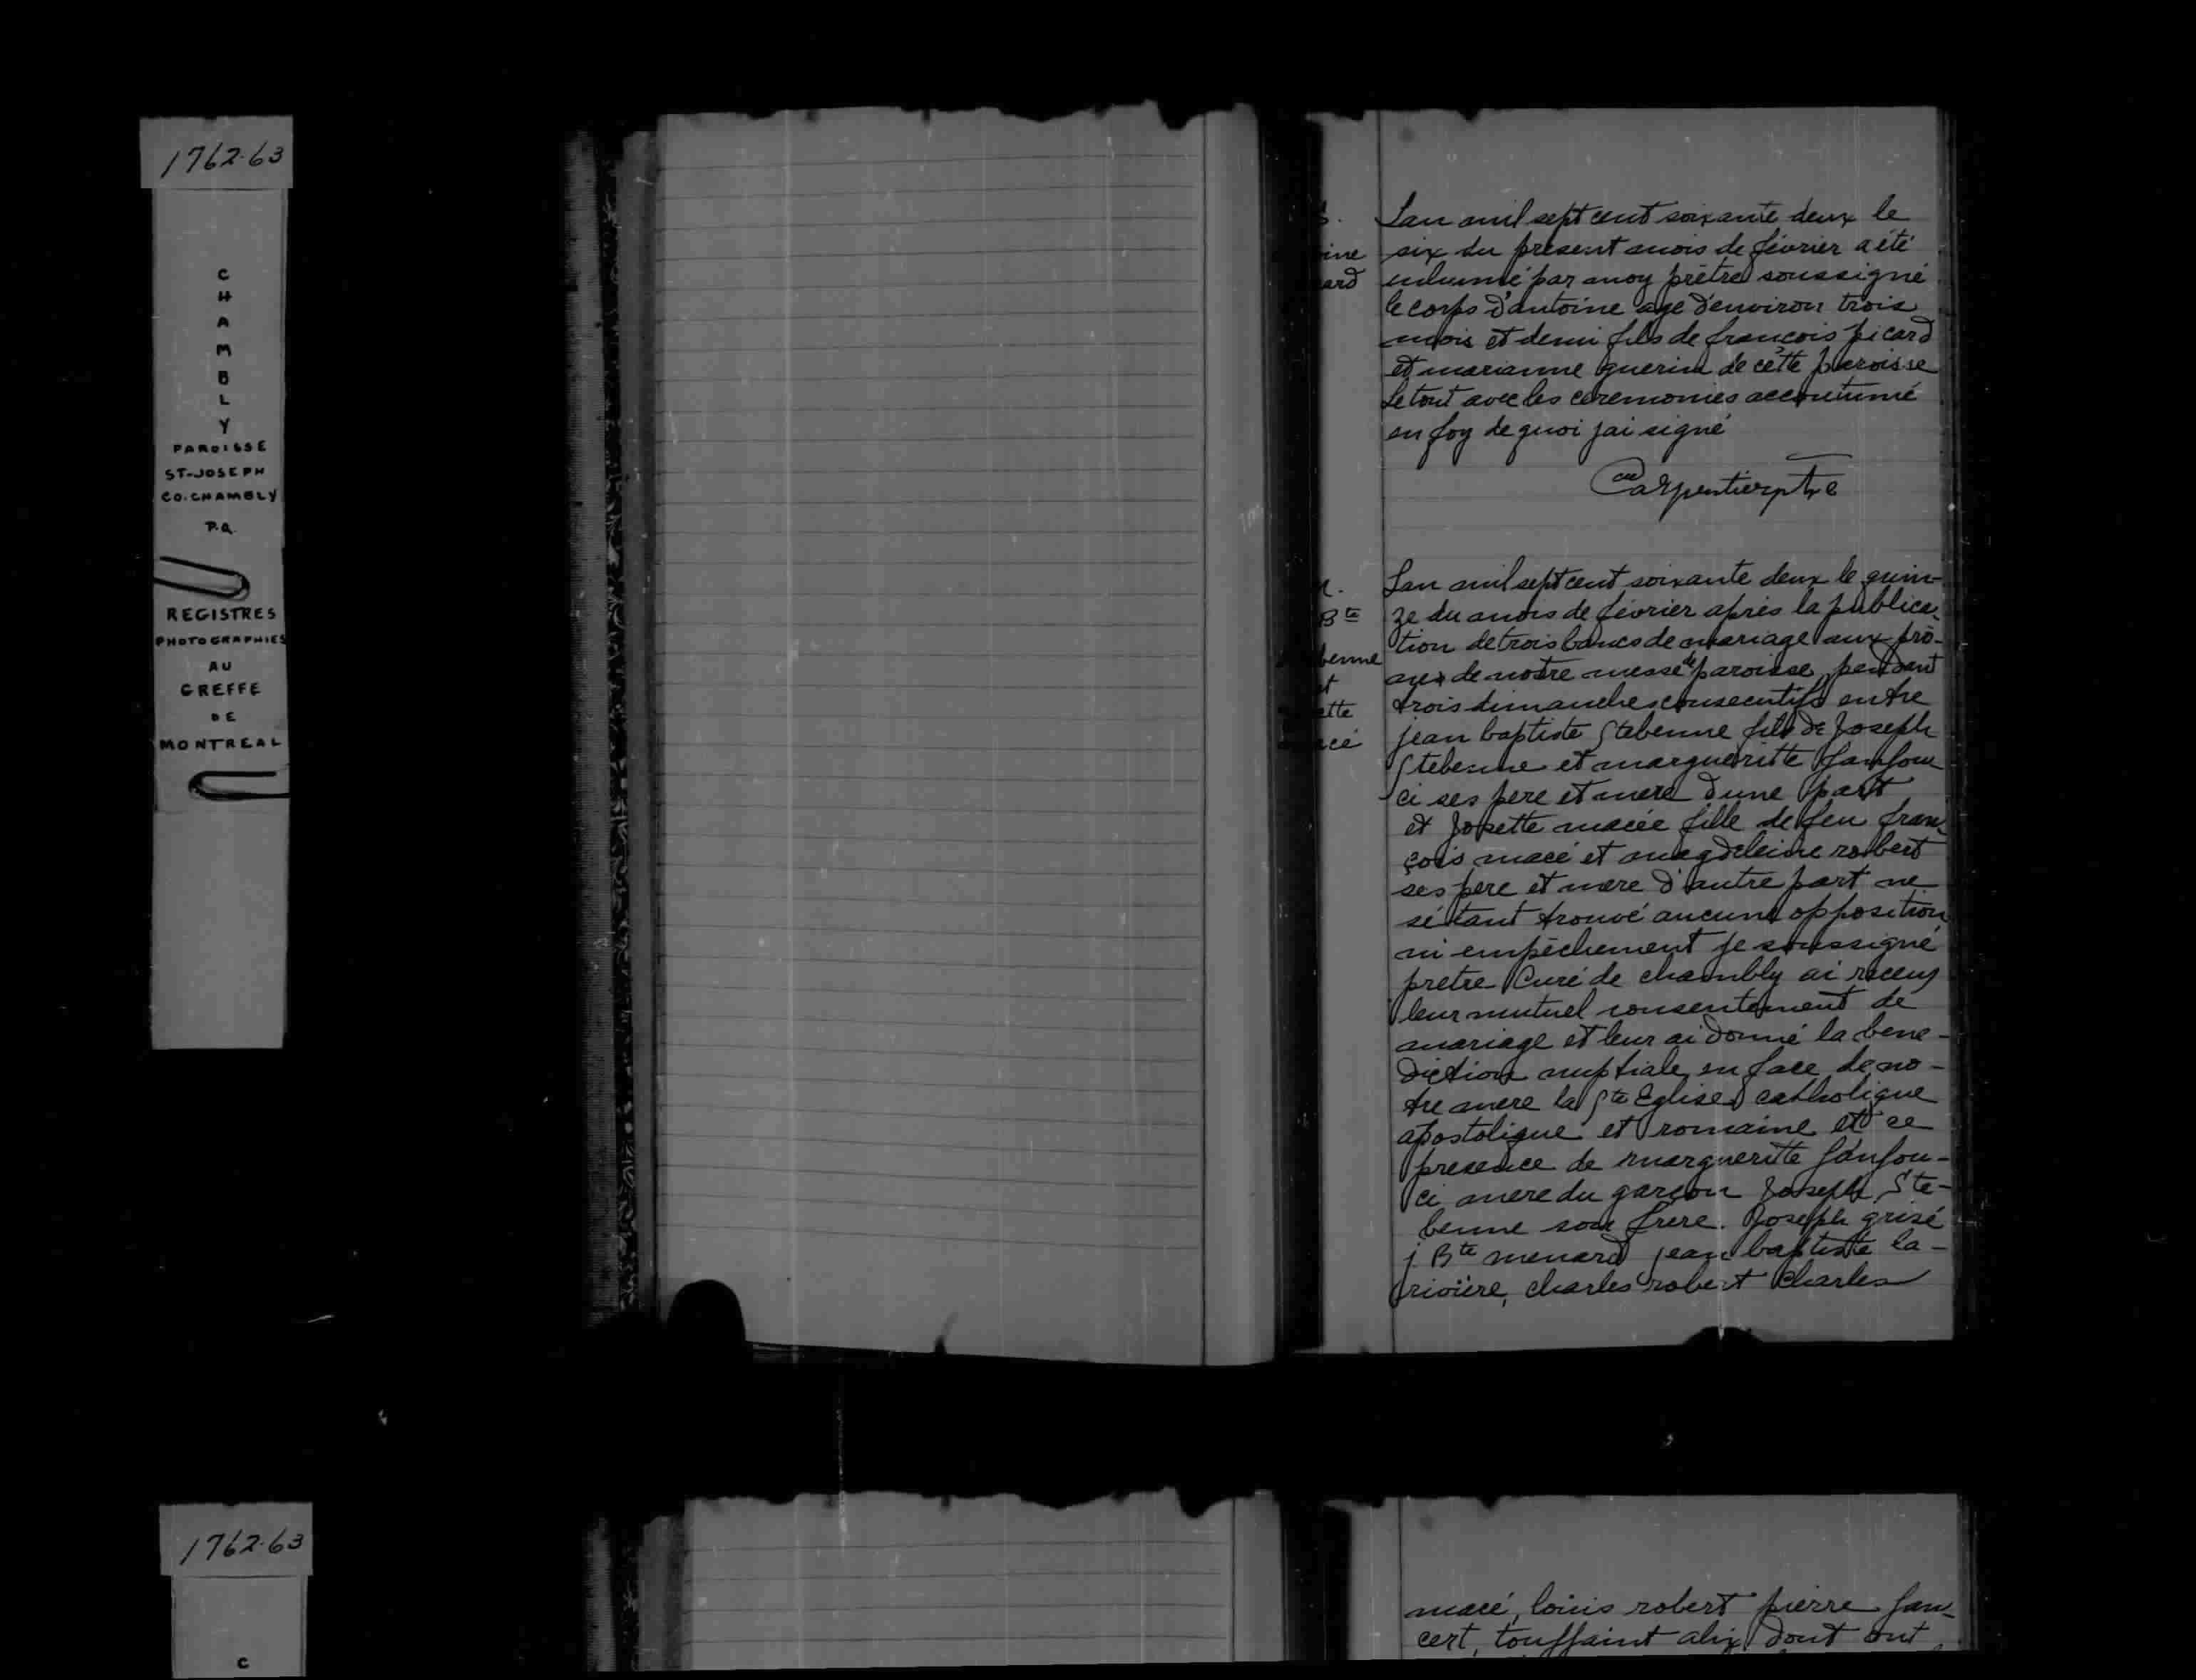 1762-63
C
H
A
M
B
L
Y
PAROISSE
ST-JOSEPH
CO. CHAMBLY
P.Q.
REGISTRES
PHOTOGRAPHIES
AU
GREFFE
DE
MONTREAL
ine
ard
Lan mil sept cent soixante deux le
six du présent mois de février a été
inhumé par moy prêtre soussigné
le corps d'antoine age d'environ trois
mois et demi fils de francois picard
et marianne guerin de cette paroisse
Le tout avec les ceremonies accoutumé
en foy de quoi jai signé
Carpentier ptre
Bte
benne
et
ette
acé
Lan mil sept cent soixante deux le quin-
ze du mois de février après la publica-
tion de trois bancs de mariage aux prô-
nes de notre messe de paroisse pendant
trois dimanches consecutifs entre
jean baptiste Stebenne fils de Joseph
Stebenne et margueritte Sanfou
ci ses pere et mere d'une part
et Josette macée fille de feu fran-
çois macé et magdeleine robert
ses pere et mere d'autre part ne
sé tant trouvé aucune opposition
ni empêchement je soussigné
pretre Curé de chambly ai receus
leur mutuel consentement de
mariage et leur ai donné la bene-
diction nuptiale en face de no-
tre mere la Ste Eglise catholique
apostolique et romaine et ce
presence de margueritte Sanfou-
ci mere du garçon Joseph Ste-
benne son frere. Joseph grisé
j Bte menard jean baptiste la-
rivière, charles robert Charles
1762-63
C
macé, louis robert pierre San-
cert, toussaint alix dont ont